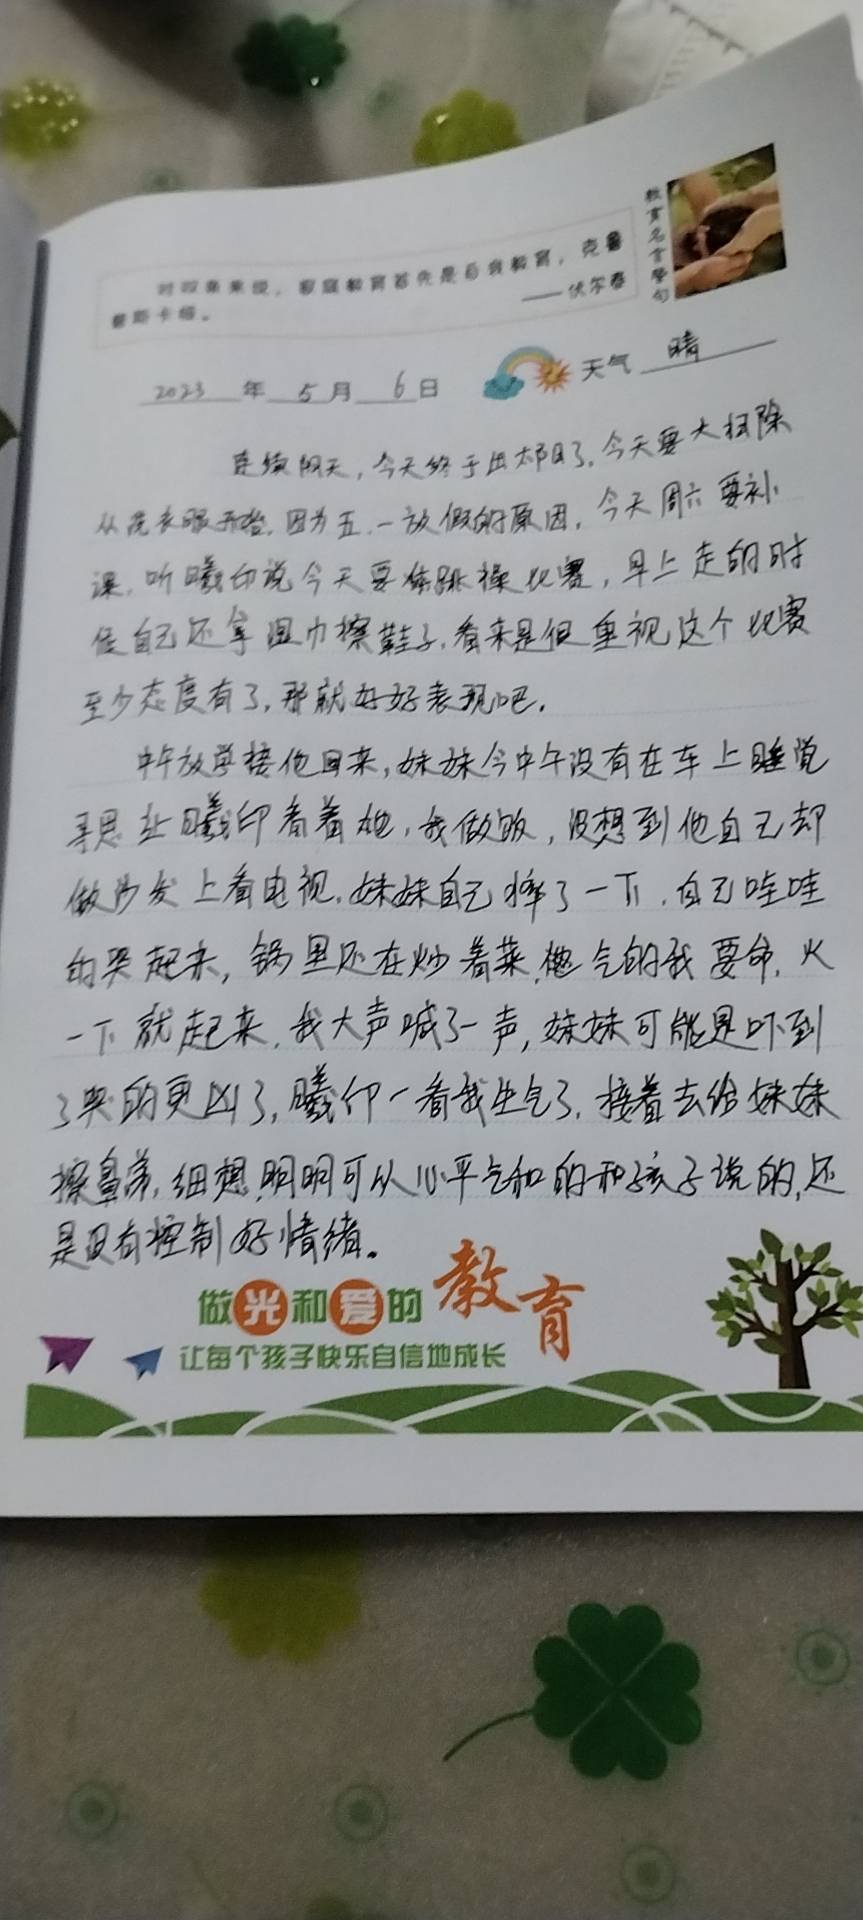 对双亲来说，家庭教育首先是自我教育，克鲁
普斯卡娅。
——伏尔泰
教育名言警句
2023年5月6日 天气 晴
连续阴天，今天终于出太阳了，今天要大扫除
从洗衣服开始，因为五.一放假的原因，今天周六要补
课，听曦印说今天要体跳操比赛，早上走的时
侯自己还拿湿巾擦鞋子，看来是但重视这个比赛
至少态度有了，那就好好表现吧。
中午放学接他回来，妹妹今中午没有在车上睡觉
寻思让曦印看着她，我做饭，没想到他自己却
做沙发上看电视，妹妹自己摔了一下，自己哇哇
的哭起来，锅里还在炒着菜，气的我要命，火
一下就起来，我大声喊了一声，妹妹可能是吓到
了哭的更凶了，曦印一看我生气了，接着去给妹妹
擦鼻涕，细想，明明可以心平气和的和孩子说的，还
是没有控制好情绪。
做光和爱的教育
让每个孩子快乐自信地成长